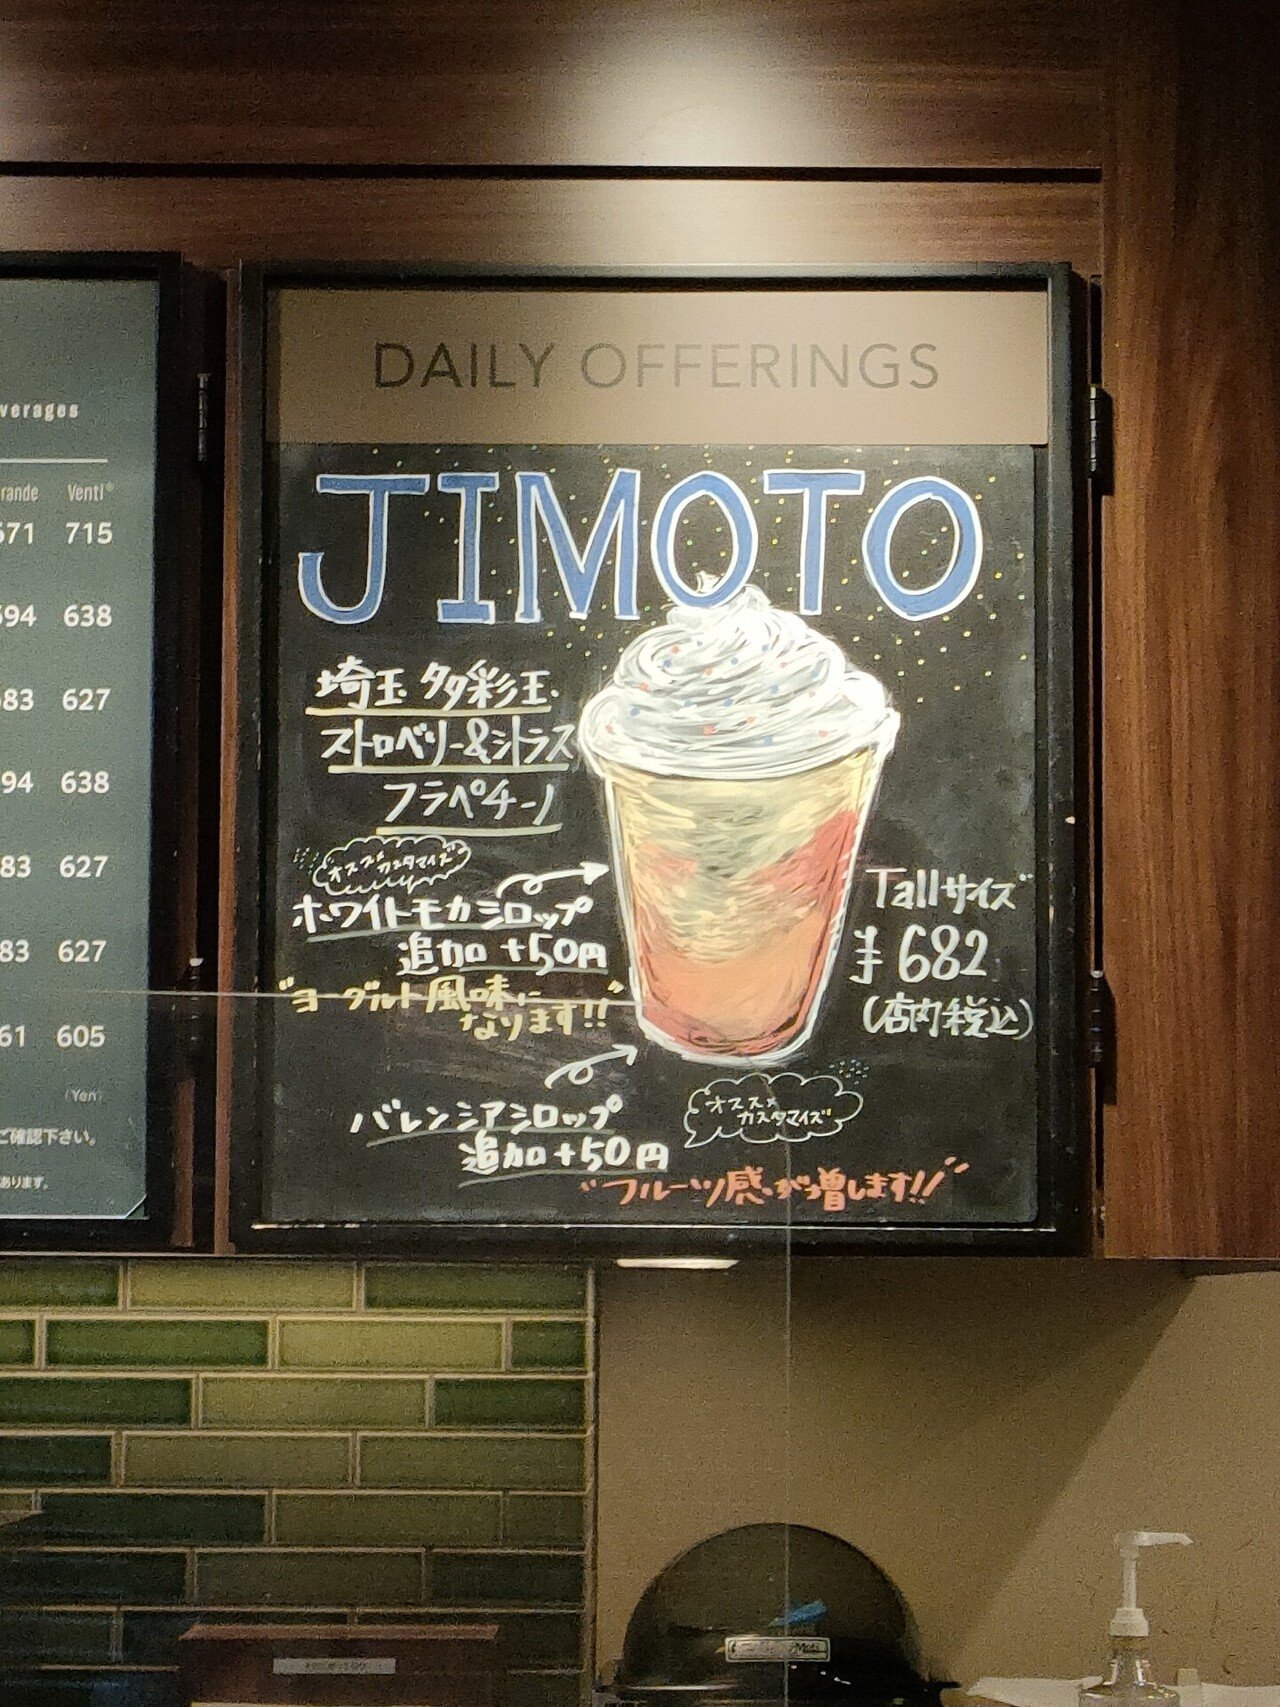 DAILY OFFERINGS
JIMOTO
埼玉 多彩玉
ストロベリー&シトラス
フラペチーノ
オススメカスタマイズ
ホワイトモカシロップ
追加 +50円
"ヨーグルト風味に
なります!!"
バレンシアシロップ
追加+50円
オススメ
カスタマイズ
"フルーツ感が増します!!"
Tallサイズ
¥682
(店内税込)
verages
rande Venti®
671 715
694 638
683 627
694 638
683 627
683 627
661 605
(Yen)
ご確認下さい。
あります。